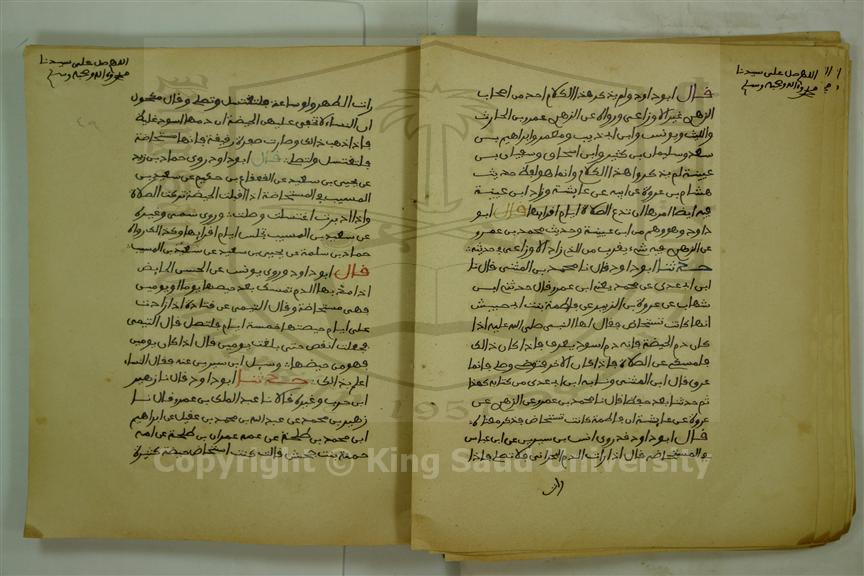 اللهم صل على سيدنا
محمد واله وصحبه وسلم
قال ابو داود ولم يذكر هذا الكلام احد من اصحاب
الزهري غير الاوزاعي ورواه عن الزهري عمرو بن الحارث
والليث ويونس وابن ابي ذيب ومعمر وابراهيم بن
سعد وسليمان بن كثير وابن اسحاق وسفيان بن
عيينة لم يذكروا هذا الكلام وانما هو لفظ حديث
هشام بن عروة عن ابيه عن عايشة وزاد ابن عيينة
فيه ايضا امرها ان تدع الصلاة ايام اقرايها قال ابو
داود وهو وهم من ابن عيينة وحديث محمد بن عمرو
عن الزهري فيه شيء يقرب من الذي زاد الاوزاعي في حديثه
حدثنا ابو داود قال نا محمد بن المثنى قال نا
ابن ابي عدي عن محمد يعني ابن عمرو قال حدثني ابن
شهاب عن عروة بن الزبير عن فاطمة بنت ابي حبيش
انها كانت تستحاض فقال لها النبي صلى الله عليه اذا
كان دم الحيضة فانه دم اسود يعرف فاذا كان ذالك
فامسكي عن الصلاة فاذا كان الاخر فتوضي وصلي فانما
عرق قال ابن المثنى ونا به ابن ابي عدي من كتابه هكذا
ثم حدثنا بعد حفظا قال نا محمد بن عمرو عن الزهري عن
عروة عن عايشة ان فاطمة كانت تستحاض فذكر معناه
قال ابو داود قد روى انس بن سيرين عن ابن عباس
في المستحاضة قال اذا رات الدم البحراني فلا تصلي فاذا
رات
اللهم صل على سيدنا
محمد واله وصحبه وسلم
رات الطهر ولو ساعة فلتغتسل وتصلي وقال مكحول
ان النساء لا تخفى عليهن الحيضة ان دمها اسود غليظ
فاذا ذهب ذالك وصارت صفرة رقيقة فانها مستحاضة
فلتغتسل ولتصل قال ابو داود روى حماد بن زيد
عن يحيى بن سعيد عن القعقاع بن حكيم عن سعيد بن
المسيب في المستحاضة اذا اقبلت الحيضة تركت الصلاة
واذا ادبرت اغتسلت وصلت وروى سمي وغيره
عن سعيد بن المسيب تجلس ايام اقرايها وكذالك رواه
حماد بن سلمة عن يحيى بن سعيد عن سعيد بن المسيب
قال ابو داود وروى يونس عن الحسن الحايض
اذا مد بها الدم تمسك بعد حيضها يوما او يومين
فهي مستحاضة وقال التيمي عن قتادة اذا زادت
على ايام حيضتها خمسة ايام فلتصل قال التيمي
فجعلت انقص حتى بلغت يومين قال اذا كان يومين
فهو من حيضها وسيل ابن سيرين عنه فقال النساء
اعلم بذالك حدثنا ابو داود قال نا زهير
ابن حرب وغيره قالا نا عبد الملك بن عمرو قال نا
زهير بن محمد عن عبد الله بن محمد بن عقيل عن ابراهيم
ابن محمد بن طلحة عن عمه عمران بن طلحة عن امه
حمنة بنت جحش قالت كنت استحاض حيضة كثيرة
Copyright © King Saud University